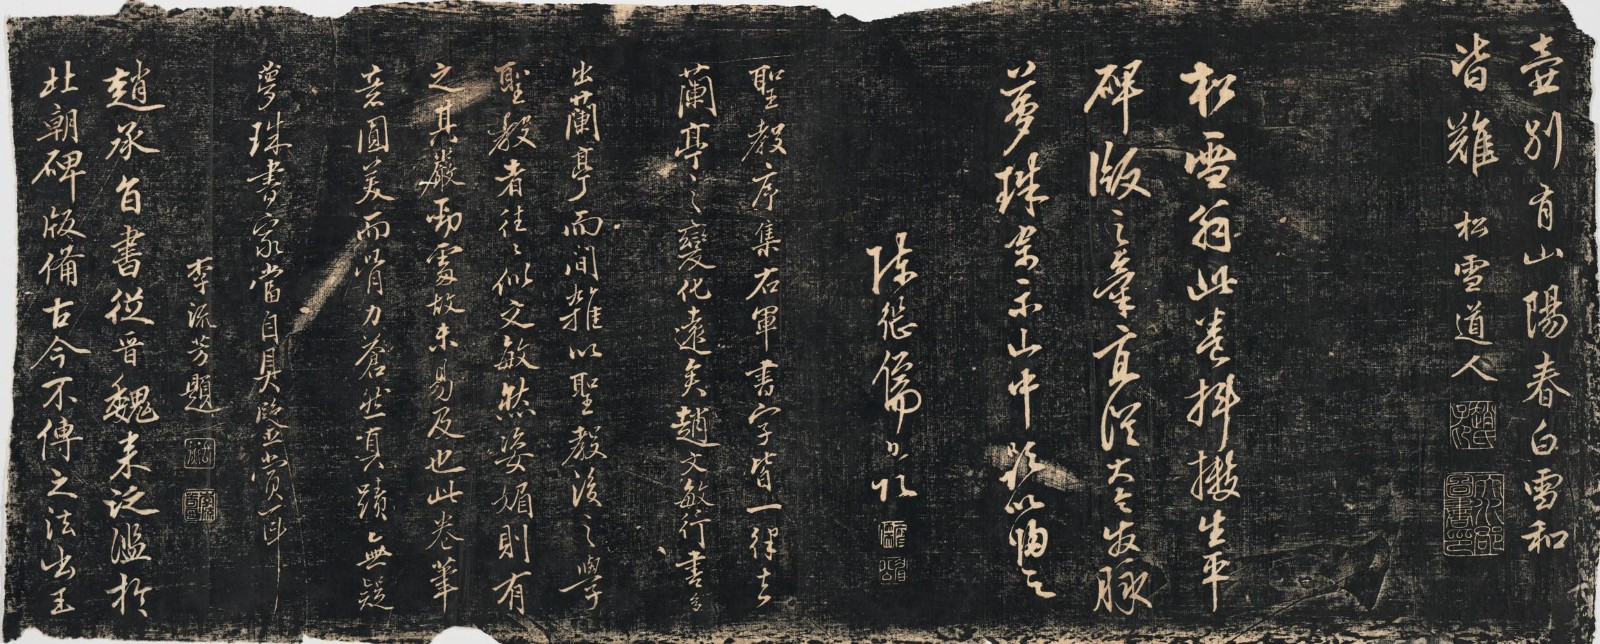 壺別有山陽春白雪和
皆難 松雪道人
松雪翁此卷抖擻生平
碑版之章直從大令發脈
夢珠宗示山中題以歸之
陳繼儒
聖教序集右軍書字皆一律去
蘭亭之變化遠矣趙文敏行書多
出蘭亭而間雜以聖教後之學
聖教者往々似文敏然姿媚則有
之其嚴勁處故未易及也此卷筆
意圓美而骨力蒼然真蹟無疑
夢珠書家當自具隻賞耳
李流芳題
趙承旨書從晉魏來泛濫於
北朝碑版備古今不傳之法出玉